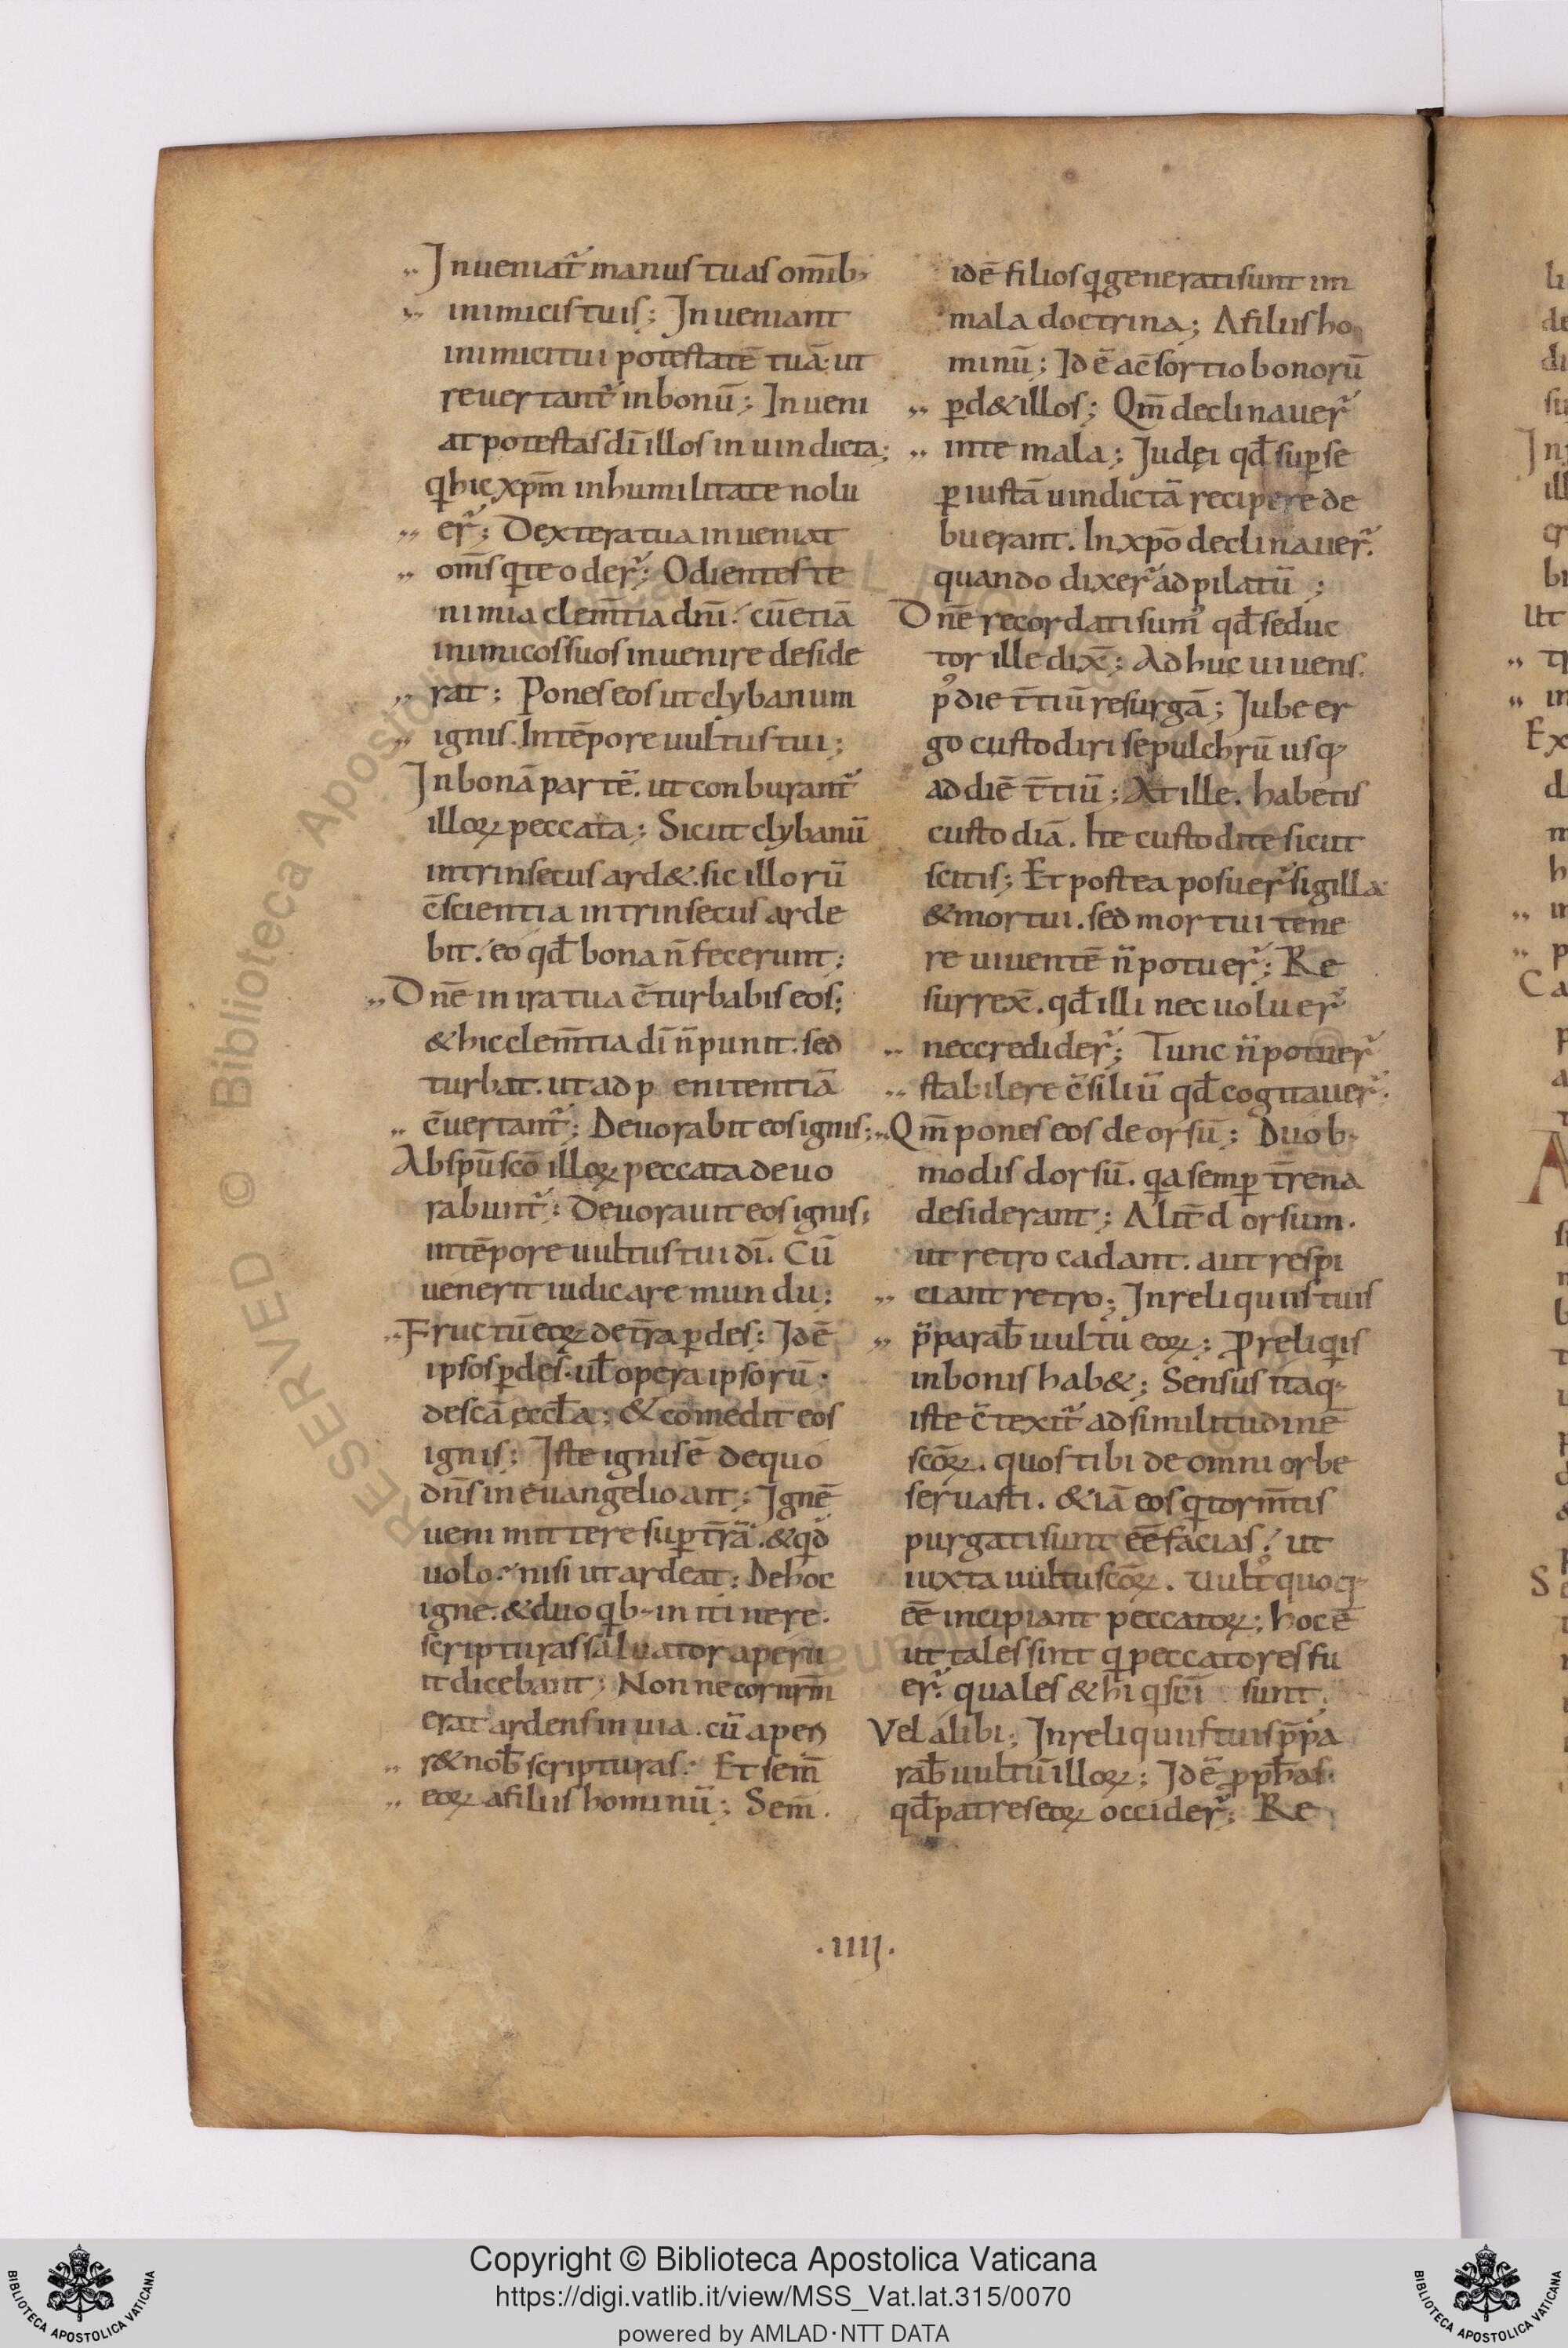 „ Inueniat᷑ manus tuas om̅ib;
„ inimicis tuis; Inueniant
inimici tui potestate̅ tua̅. ut
reuertant᷑ in bonu̅; Inueni
at potestas dı̅ illos in uindicta;
q̇ hic xp̅m in humilitate nolu
„ er᷑; Dextera tua inueniat
„ om̅s q̇ te oder᷑; Odientes te
nimia clem̅tia dn̅i. cu̅ etia̅
inimicos suos inuenire deside
„ rat; Pones eos ut clybanum
„ ignis. In te̅pore uultus tui;
In bona̅ parte̅. ut conburant᷑
illoꝝ peccata; Sicut clybanu̅
intrinsecus ard&. sic illoru̅
c̅scientia intrinsecus arde
bit. eo qd̅ bona n̅ fecerunt;
„ Dn̅e in ira tua c̅turbabis eos;
& hic clem̅tia dı̅ n̅ punit. sed
turbat. ut ad p enitentia̅
„ c̅uertant᷑; Deuorabit eos ignis;
Ab sp̅u sc̅o illoꝝ peccata deuo
rabunt᷑; Deuorauit eos ignis;
in te̅pore uultus tui dı̅. Cu̅
uenerit iudicare mundu;
„ Fructu̅ eoꝝ de t̅ra ꝑdes; Id e̅
ipsos ꝑdes. ul̅ opera ipsoru̅.
des c̅a eccl̅a; & co̅medit eos
ignis; Iste ignis e̅ de quo
dn̅s in euangelio ait; Igne̅
ueni mittere suꝑ t̅ra̅. & qd̅
uolo. nisi ut ardeat; De hoc
igne. & duo q̇b; in itinere.
scripturas saluator aperu
it dicebant; Nonne cor nr̅m
erat ardens in uia. cu̅ aperi
„ r& nob̅ scripturas. Et sem̅
„ eoꝝ a filiis hominu̅; Sem̅.
id e̅ filios q̇ generati sunt im
mala doctrina; A filiis ho
minu̅; Id e̅ a c̅sortio bonoru̅
„ ꝑd& illos; Qm̅ declinauer᷑
„ in te mala; Iudęi qd̅ suꝑ se
ꝑ iusta̅ uindicta̅ recipere de
buerant. In xp̅o declinauer᷑.
quando dixer᷑ ad pilatu̅;
Dn̅e recordati sum᷒ qd̅ seduc
tor ille dix̅; Adhuc uiuens.
p᷒ die t̅tiu̅ resurga̅; Iube er
go custodiri sepulchru̅ usq;
ad die̅ t̅tiu̅; At ille. habetis
custodia̅. Ite custodite sicut
scitis; Et postea posuer᷑ sigilla
& mortui. sed mortui tene
re uiuente̅ n̅ potuer᷑; Re
surrex̅. qd̅ illi nec uoluer᷑
„ nec credider᷑; Tunc n̅ potuer᷑
„ stabilere c̅siliu̅ qd̅ cogitauer᷑.
„ Qm̅ pones eos deorsu̅; Duob;
modis dorsu̅. q̇a semꝑ t̅rena
desiderant; Alit̅ dorsum.
ut retro cadant. aut respi
„ ciant retro; In reliquiis tuis
„ p̅parab̅ uultu̅ eoꝝ; Pro reliq̇is
in bonis hab&; Sensus itaq;
iste c̅texit᷑ ad similitudine̅
sc̅oꝝ. quos tibi de omni orbe
seruasti. & ia̅ eos q̇ torm̅tis
purgati sunt e̅e̅ facias. ut
iuxta uultu sc̅oꝝ. Uult᷒ quoq;
e̅e̅ incipiant peccatoꝝ; hoc e̅
ut tales sint q̇ peccatores fu
er᷑. quales & hi q̇ sc̅i sunt.
Vel alibi; In reliquiis tuis p̅pa
rab̅ uultu̅ illoꝝ; Id e̅ ꝓph̅as.
qd̅ patres eoꝝ occider᷑; Re
.IIIJ.
Copyright © Biblioteca Apostolica Vaticana
https://digi.vatlib.it/view/MSS_Vat.lat.315/0070
powered by AMLAD·NTT DATA